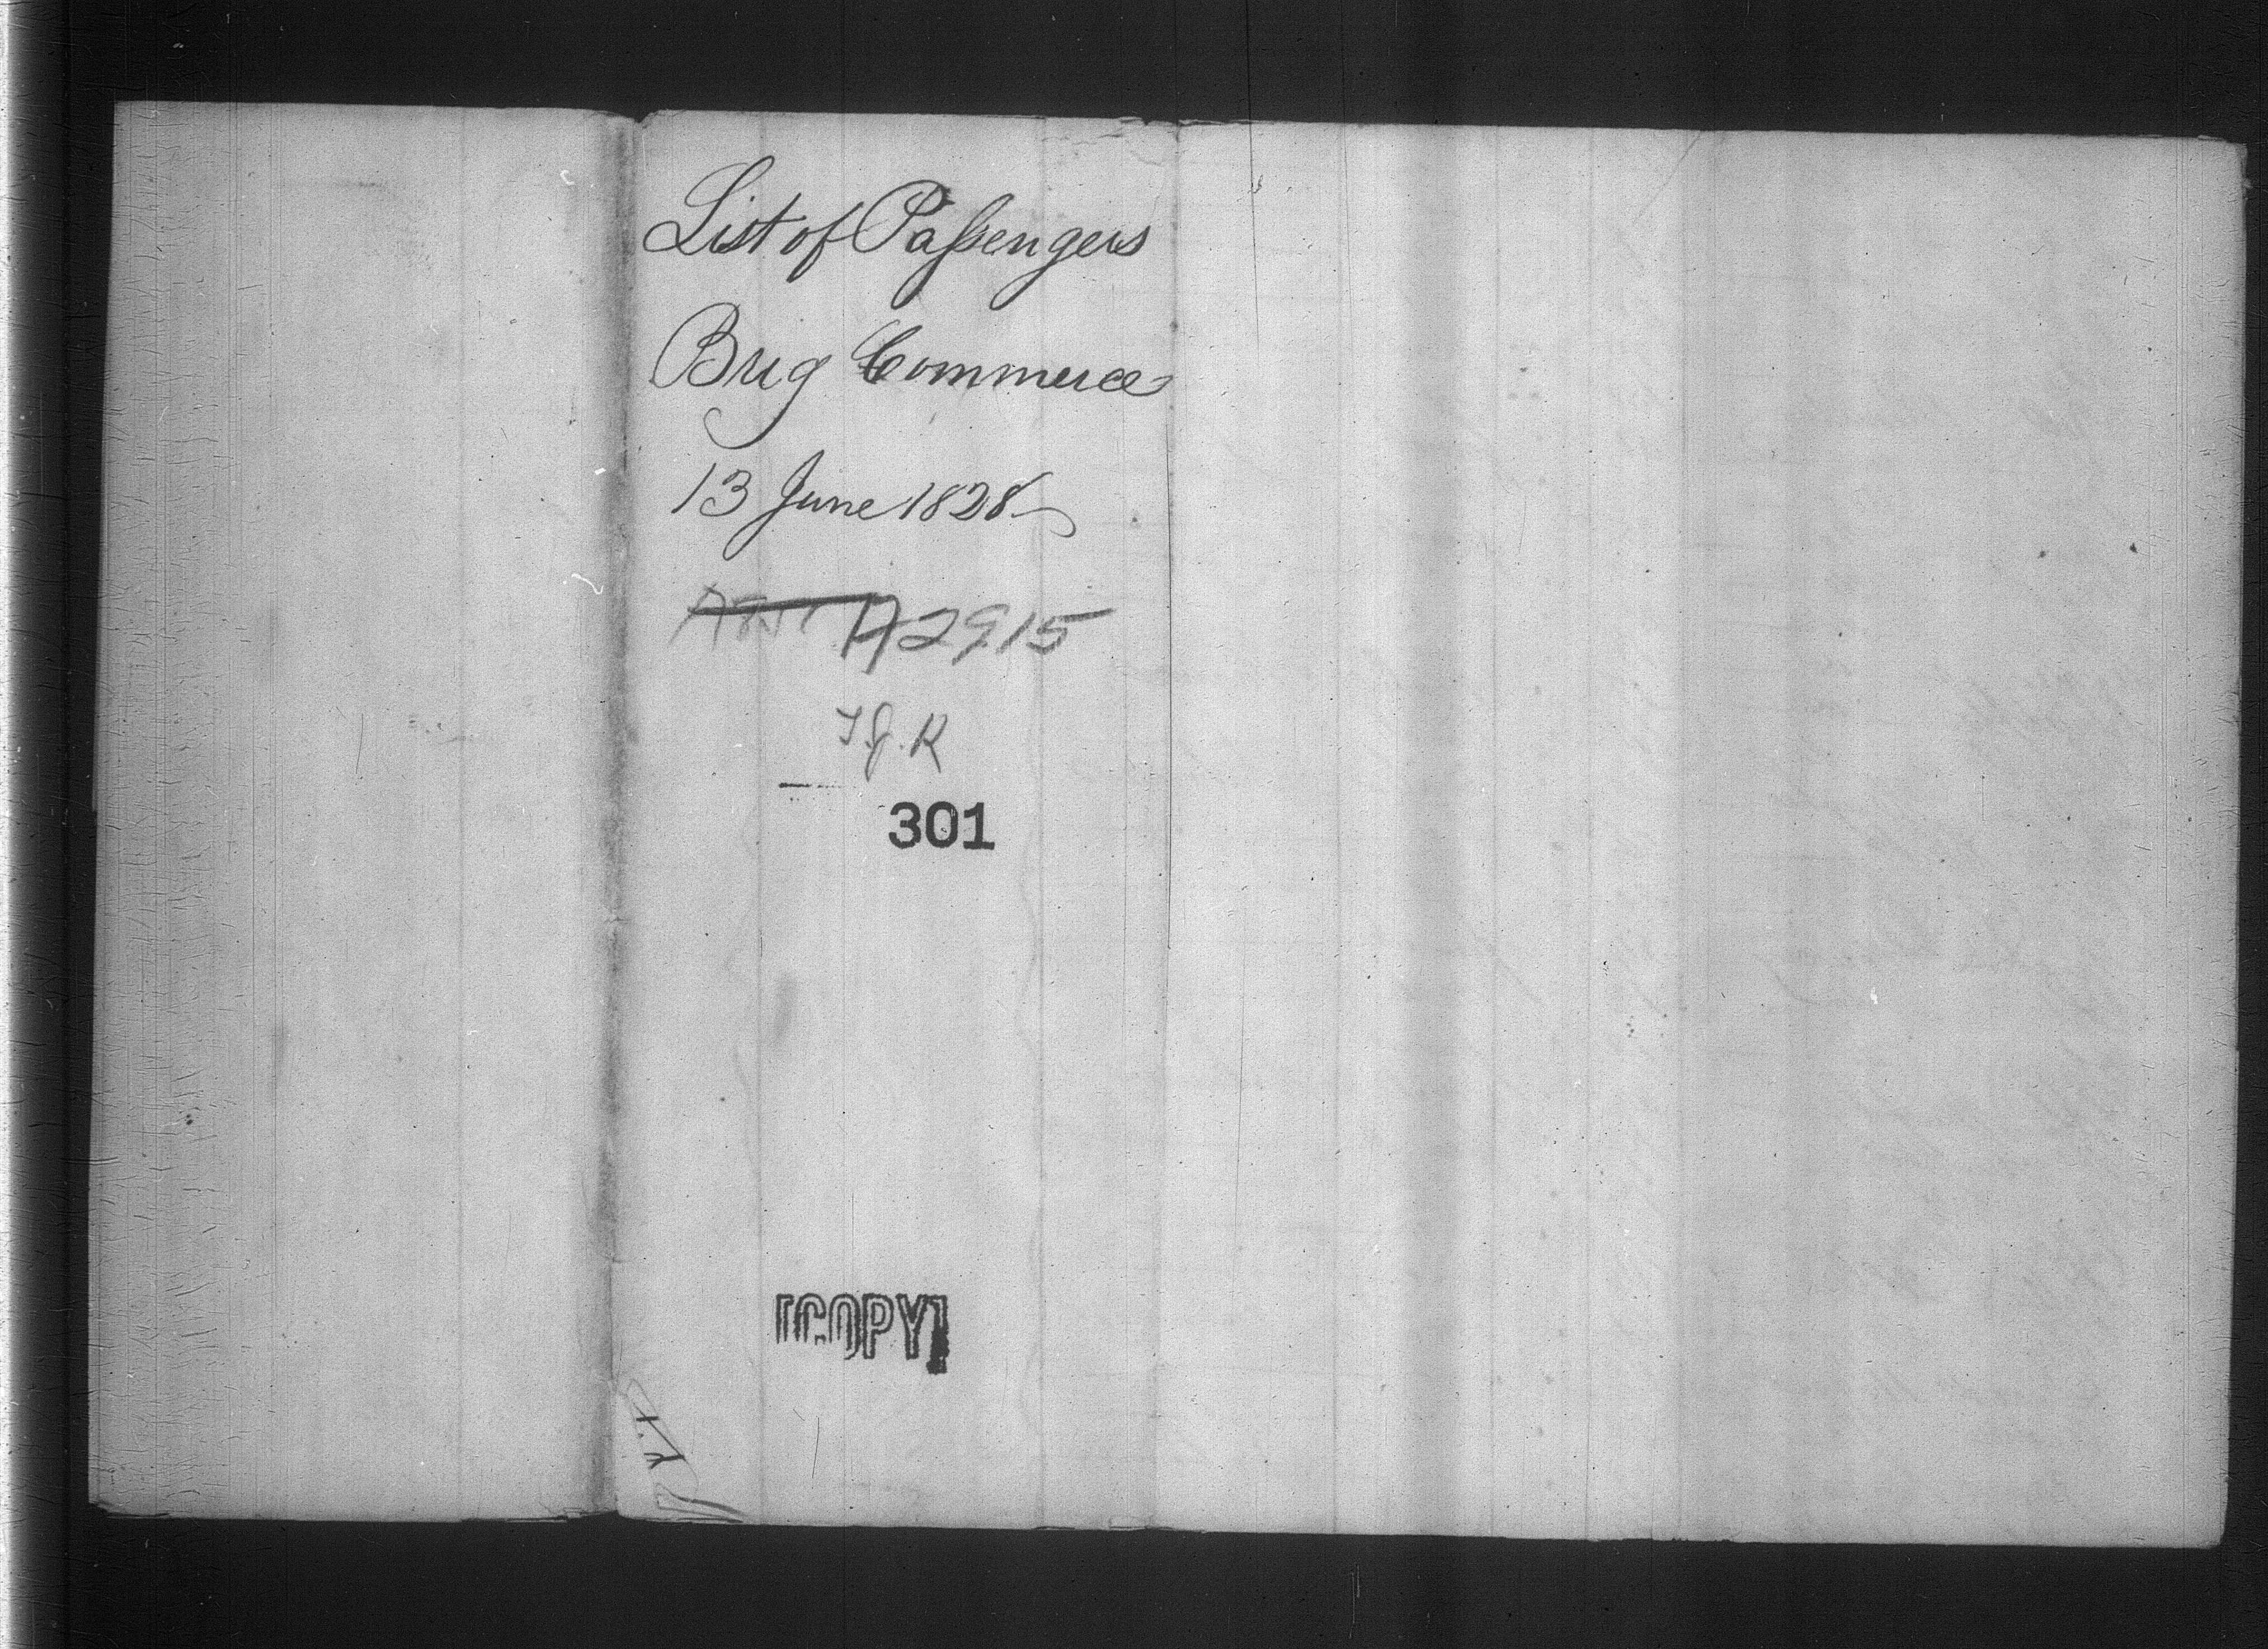 List of Paſsengers
Brig Commerce
13 June 1828
A2915
T.J.R
301
[COPY]